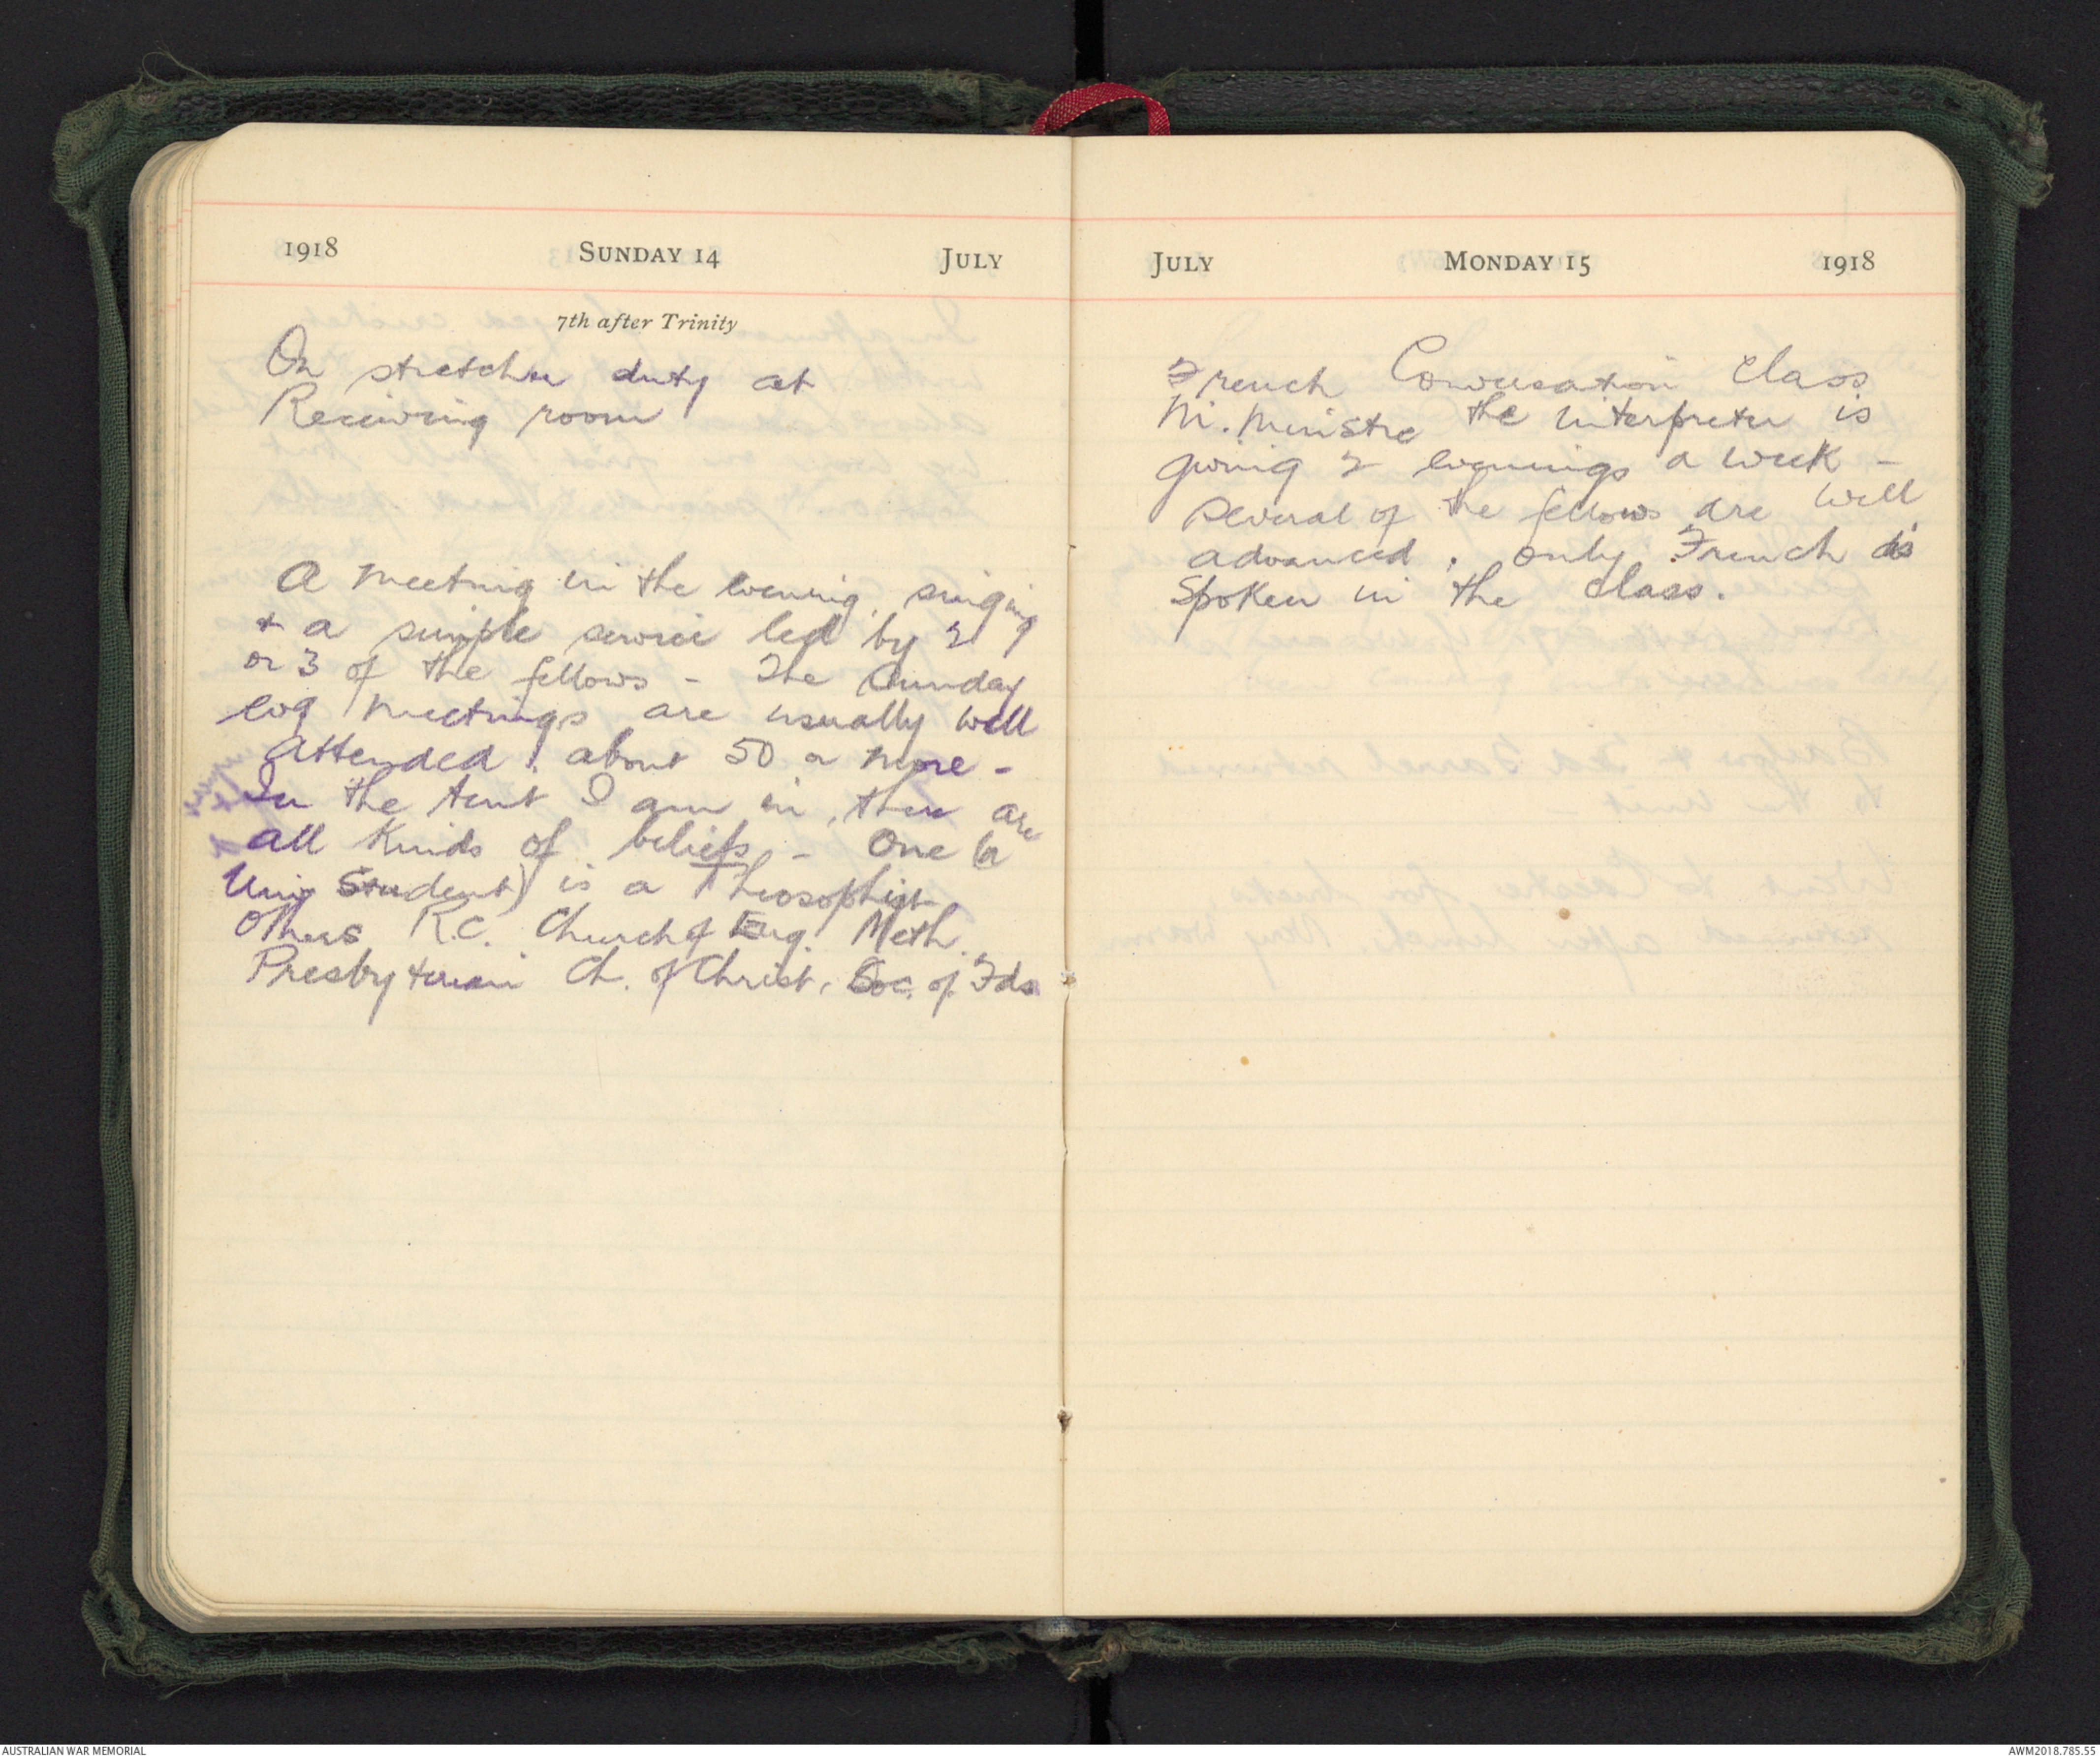 1918 SUNDAY 14 JULY
7th after Trinity
On stretcher duty at
Receiving room
A meeting in the evening, singing
+ a simple service led by 2
or 3 of the fellows - The Sunday
evg meetings are usually well
attended, about 50 or more -
In the tent I am in, there are
all kinds of beliefs - One (a
Uniy Student) is a Theosophist
Others R.C. Church of Eng. Meth.
Presbyterian Ch. of Christ, Soc. of Fds
JULY MONDAY 15 1918
French Conversation Class
M. Ministre the interpreter is
giving 2 evenings a week -
Several of the fellows are well
advanced. only French is
Spoken in the class.
AUSTRALIAN WAR MEMORIAL
AWM2018.785.55